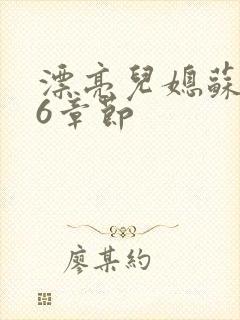 漂亮兒媳蘇
6章節
廖某約